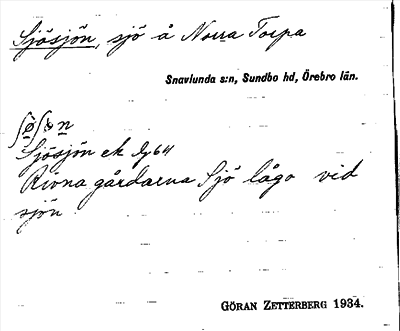 Sjösjön, sjö å Norra Torpa
Snavlunda s:n, Sundbo hd, Örebro län.
Sjösjön ek
Rivna gårdarna Sjö lågo vid
sjön
GÖRAN ZETTERBERG 1934.